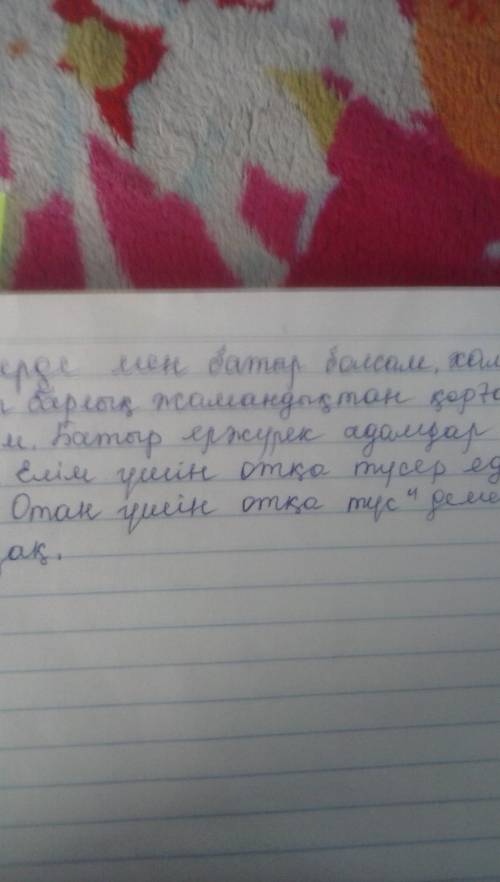 ерде мен батыр болсам, хал
барлық жамандықтан қорға
м. Батыр ержүрек адамдар
Елім үшін отқа түсер ед
Отан үшін отқа түс" деме
ақ.